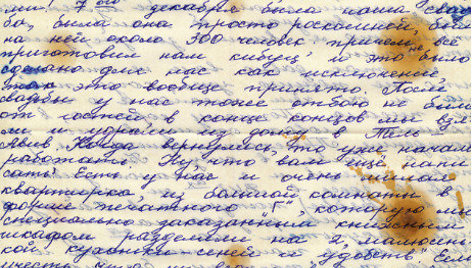 ми! 7го декабря была наша свадь
ба, была она просто роскошной, было
на ней около 300 человек причем всё
приготовил нам кибуц, и это не было
сделано для нас как исключение,
так это вообще принято. После
свадьбы у нас тоже отбою не было
от гостей в конце концов мы взя
ли и удрали из дому в Тель
Авив. Когда вернулись, то уже начали
работать. Ну что вам ещё напи
сать? Есть у нас и очень милая
квартирка, из большой комнаты в
форме печатного "Г", которую мы
специально заказанным книжным
шкафом разделили на 2, малюсень
кой кухоньки-сеней и удобств. Если
учесть что